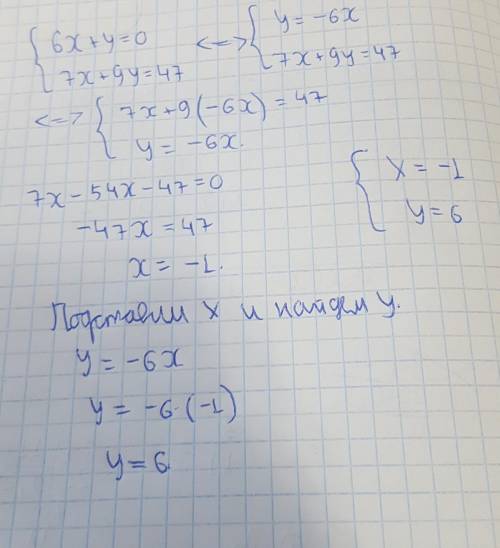 { 6x+y=0 <=> { y=-6x
{ 7x+9y=47 { 7x+9y=47
<=> { 7x+9(-6x)=47
{ y=-6x.
7x-54x-47=0
-47x=47
x=-1.
{ x=-1
{ y=6
Подставим x и найдем y.
y=-6x
y=-6·(-1)
y=6